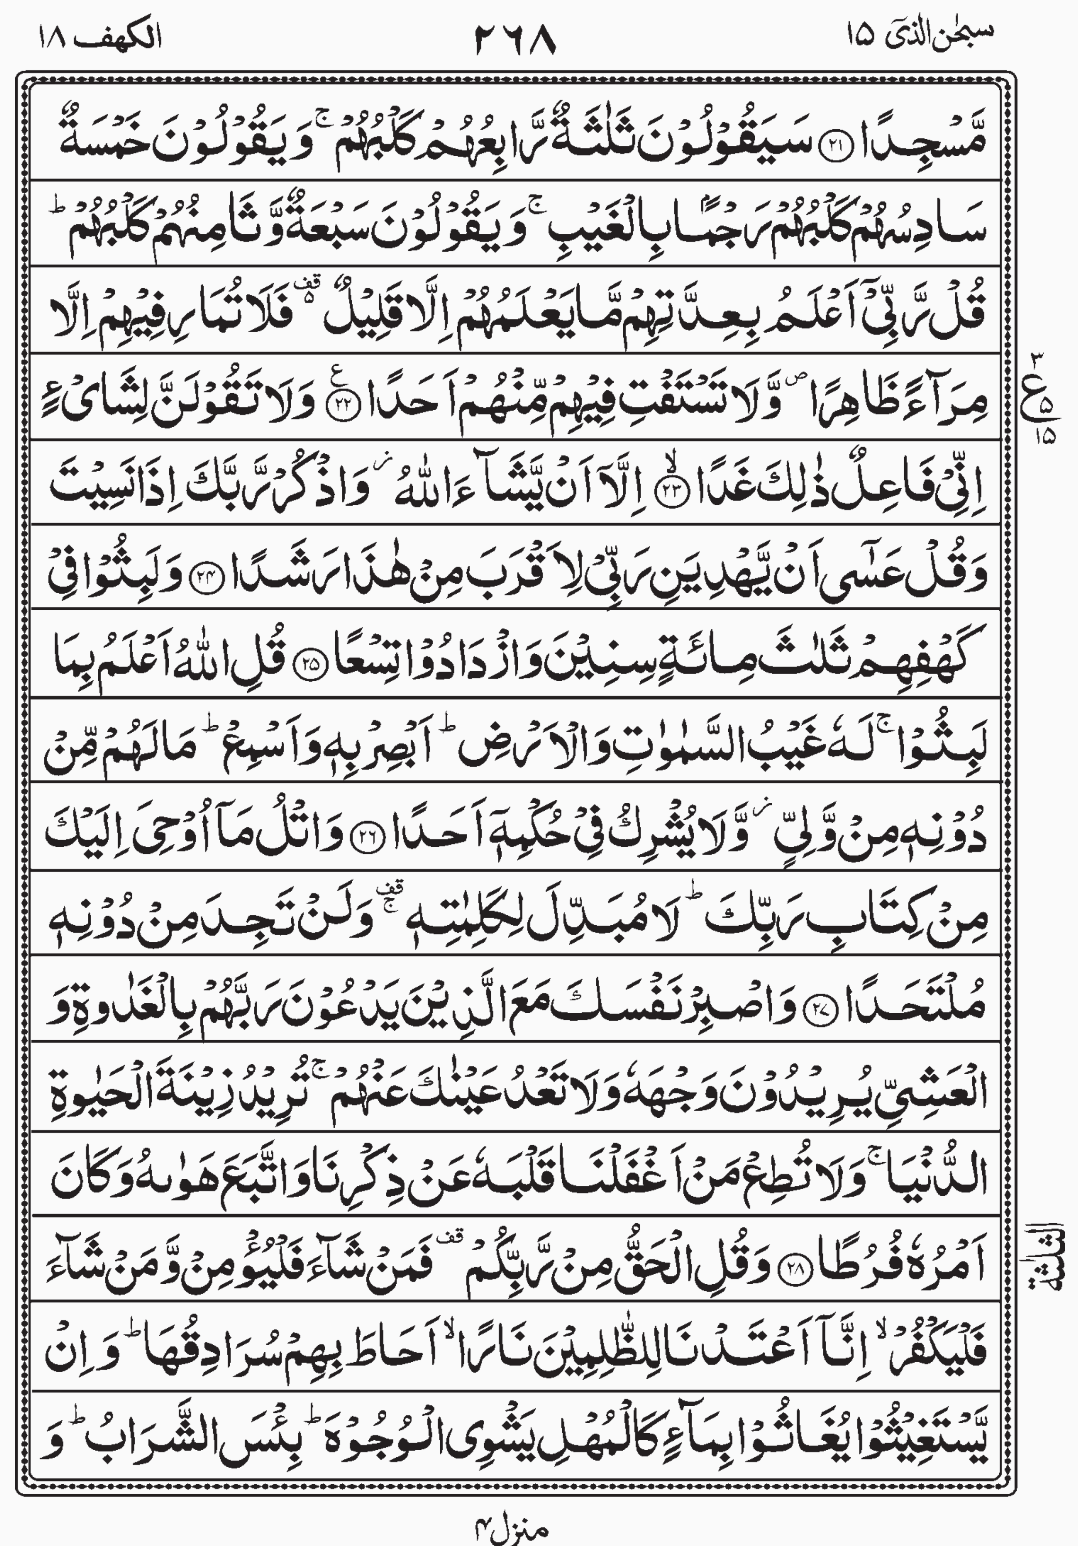 سبحٰن الذی ۱۵
۲۶۸
الكهف ۱۸
مَّسْجِدًا ۝۲۱ سَيَقُوْلُوْنَ ثَلٰثَةٌ رَّابِعُهُمْ كَلْبُهُمْ ۚ وَيَقُوْلُوْنَ خَمْسَةٌ
سَادِسُهُمْ كَلْبُهُمْ رَجْمًۢا بِالْغَيْبِ ۚ وَيَقُوْلُوْنَ سَبْعَةٌ وَّثَامِنُهُمْ كَلْبُهُمْ ؕ
قُلْ رَّبِّیْۤ اَعْلَمُ بِعِدَّتِهِمْ مَّا يَعْلَمُهُمْ اِلَّا قَلِيْلٌ ۫ قف فَلَا تُمَارِ فِيْهِمْ اِلَّا
مِرَآءً ظَاهِرًا ۪ وَّلَا تَسْتَفْتِ فِيْهِمْ مِّنْهُمْ اَحَدًا ۝۲۲ ع وَلَا تَقُوْلَنَّ لِشَایْءٍ
اِنِّیْ فَاعِلٌ ذٰلِكَ غَدًا ۝۲۳ ۙ اِلَّاۤ اَنْ يَّشَآءَ اللّٰهُ ؗ وَاذْكُرْ رَّبَّكَ اِذَا نَسِيْتَ
وَقُلْ عَسٰۤی اَنْ يَّهْدِيَنِ رَبِّیْ لِاَقْرَبَ مِنْ هٰذَا رَشَدًا ۝۲۴ وَلَبِثُوْا فِیْ
كَهْفِهِمْ ثَلٰثَ مِائَةٍ سِنِيْنَ وَازْدَادُوْا تِسْعًا ۝۲۵ قُلِ اللّٰهُ اَعْلَمُ بِمَا
لَبِثُوْا ۚ لَهٗ غَيْبُ السَّمٰوٰتِ وَالْاَرْضِ ؕ اَبْصِرْ بِهٖ وَاَسْمِعْ ؕ مَا لَهُمْ مِّنْ
دُوْنِهٖ مِنْ وَّلِیٍّ ؗ وَّلَا يُشْرِكُ فِیْ حُكْمِهٖۤ اَحَدًا ۝۲۶ وَاتْلُ مَاۤ اُوْحِیَ اِلَيْكَ
مِنْ كِتَابِ رَبِّكَ ؕ لَا مُبَدِّلَ لِكَلِمٰتِهٖ ۚ قف وَلَنْ تَجِدَ مِنْ دُوْنِهٖ
مُلْتَحَدًا ۝۲۷ وَاصْبِرْ نَفْسَكَ مَعَ الَّذِيْنَ يَدْعُوْنَ رَبَّهُمْ بِالْغَدٰوةِ وَ
الْعَشِیِّ يُرِيْدُوْنَ وَجْهَهٗ وَلَا تَعْدُ عَيْنٰكَ عَنْهُمْ ۚ تُرِيْدُ زِيْنَةَ الْحَيٰوةِ
الدُّنْيَا ۚ وَلَا تُطِعْ مَنْ اَغْفَلْنَا قَلْبَهٗ عَنْ ذِكْرِنَا وَاتَّبَعَ هَوٰىهُ وَكَانَ
اَمْرُهٗ فُرُطًا ۝۲۸ وَقُلِ الْحَقُّ مِنْ رَّبِّكُمْ قف فَمَنْ شَآءَ فَلْيُؤْمِنْ وَّمَنْ شَآءَ
فَلْيَكْفُرْ ۙ اِنَّاۤ اَعْتَدْنَا لِلظّٰلِمِيْنَ نَارًا ۙ اَحَاطَ بِهِمْ سُرَادِقُهَا ؕ وَاِنْ
يَّسْتَغِيْثُوْا يُغَاثُوْا بِمَآءٍ كَالْمُهْلِ يَشْوِی الْوُجُوْهَ ؕ بِئْسَ الشَّرَابُ ؕ وَ
۳
ع
۵
۱۵
الثلثة
منزل ۴